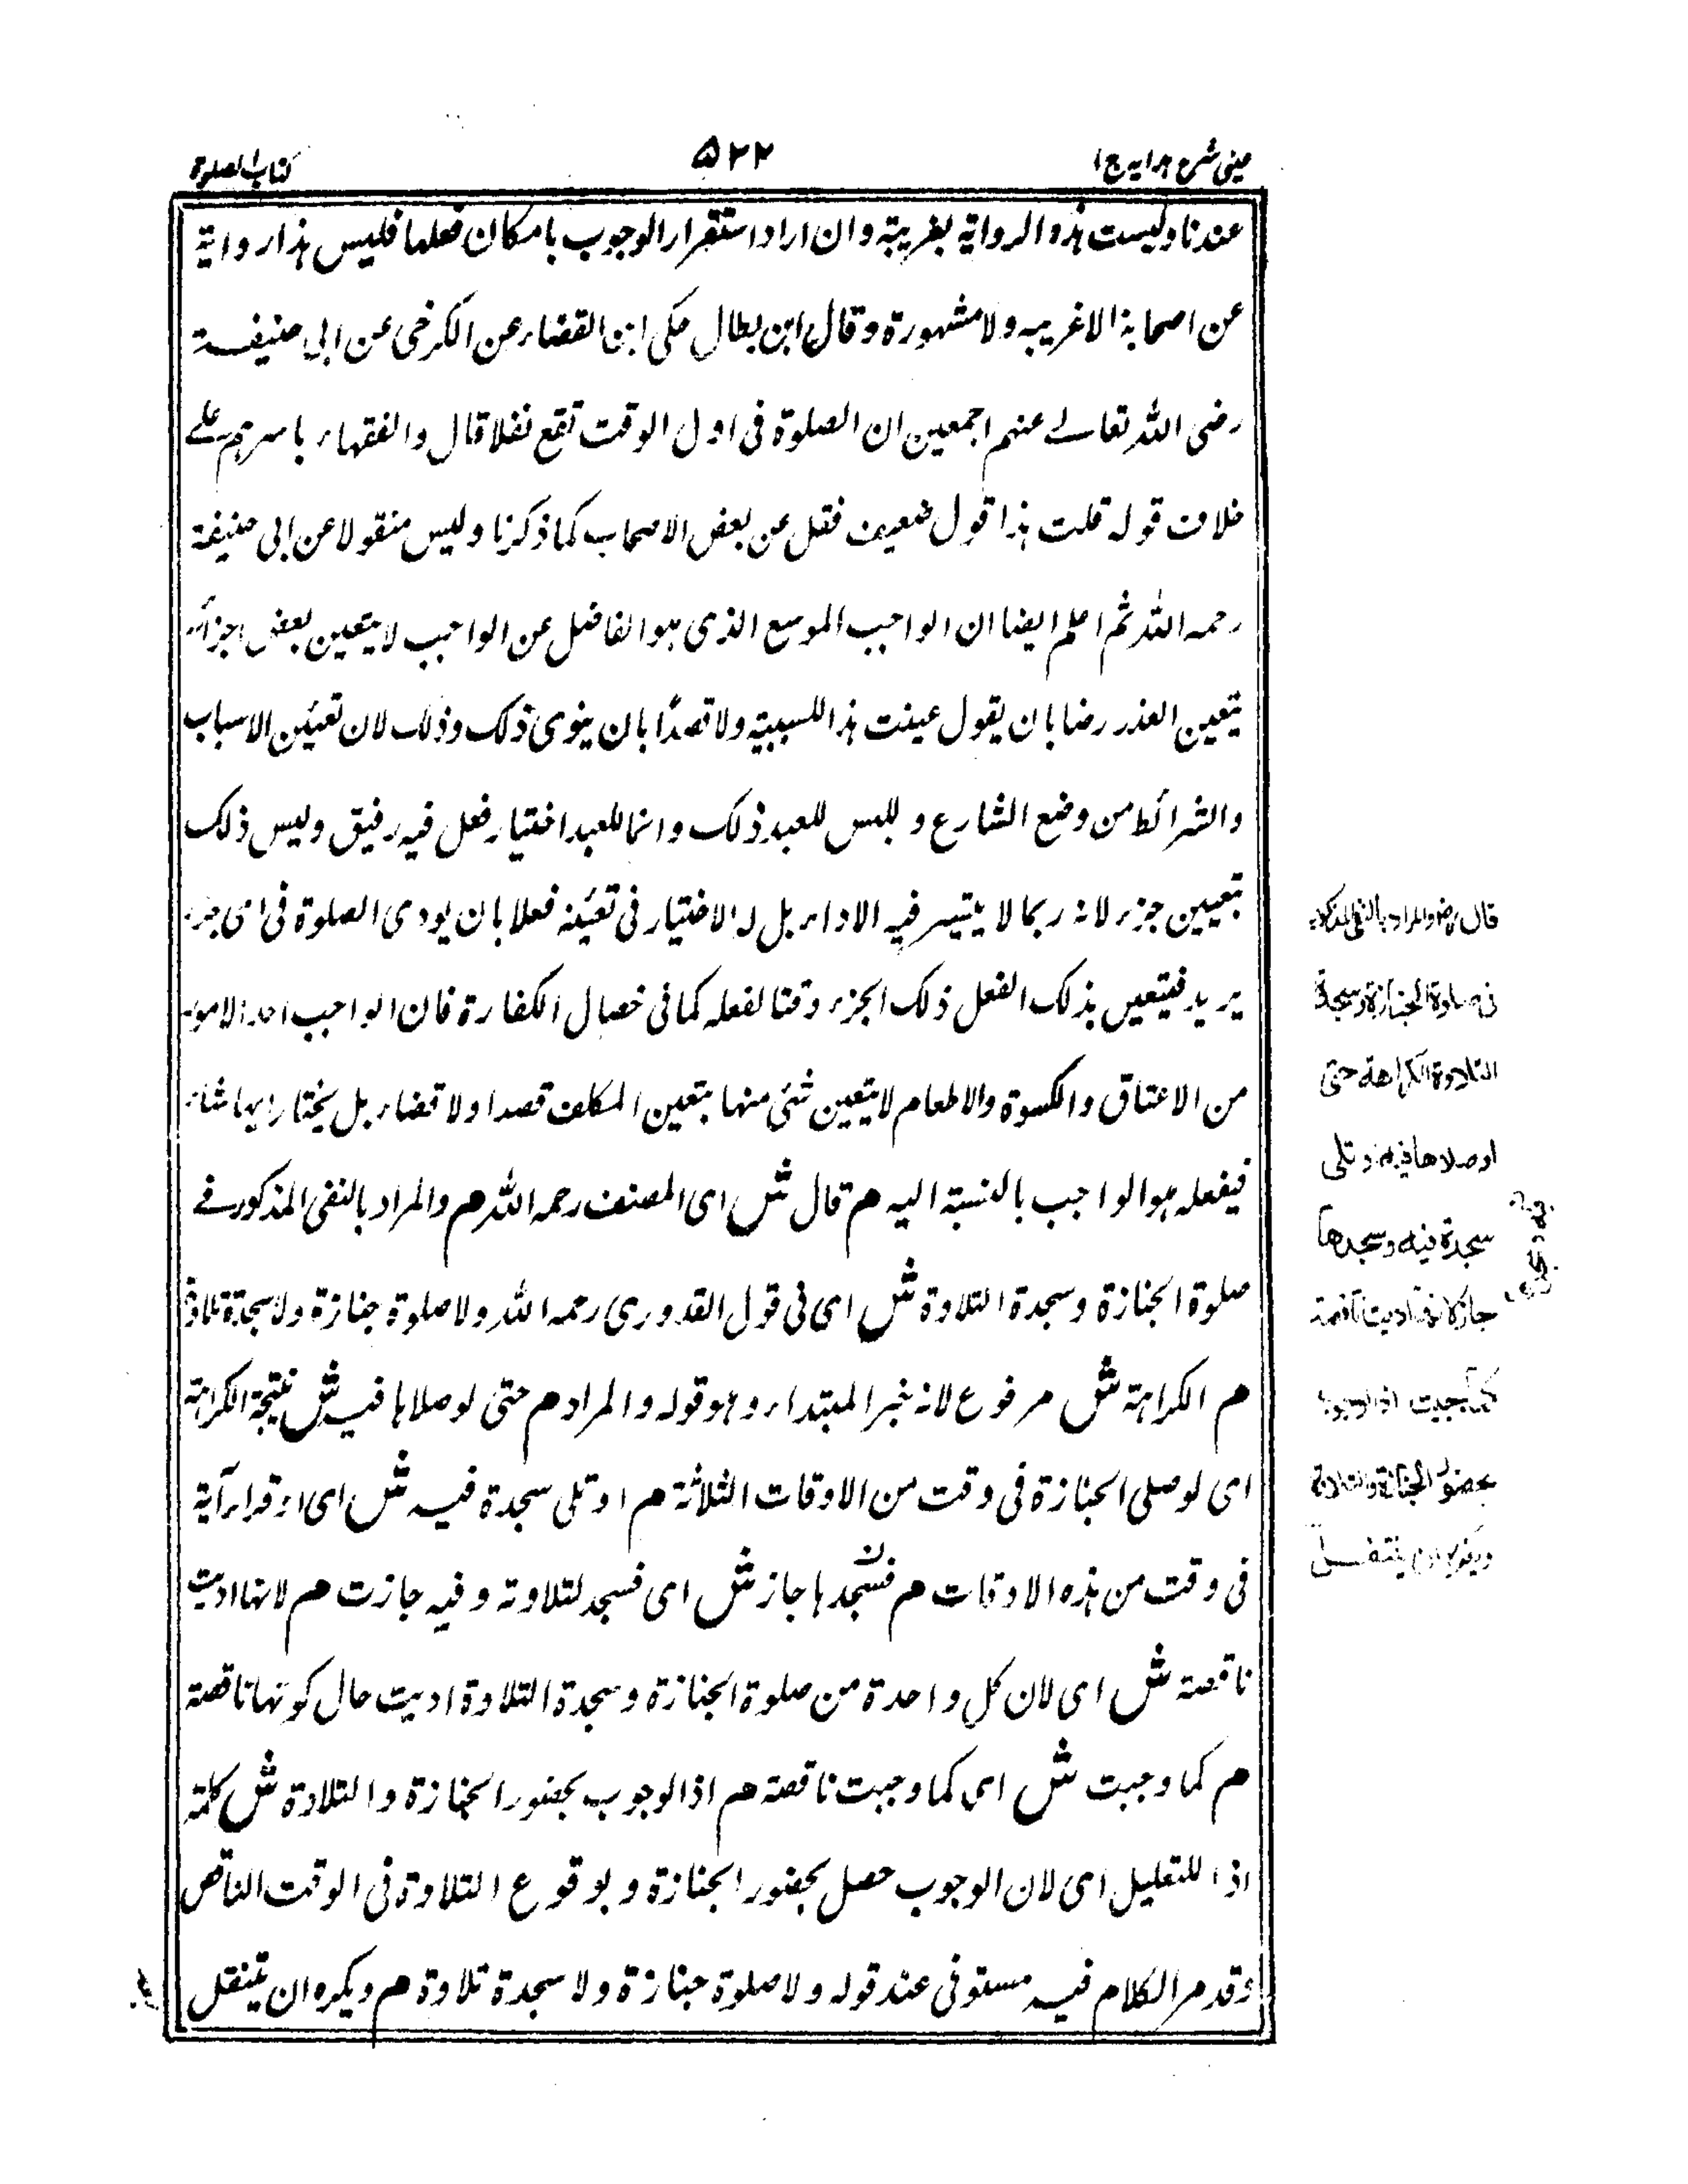 عينى شرح هدايه ج ١
٥٢٢
كتاب الصلوة
عندنا وليست هذه الرواية بغريبة وان اراد استقرار الوجوب بامكان فعلها فليس هذا رواية
عن اصحابنا الا غريبه ولا مشهورة وقال ابن بطال حكى ابن القضاء عن الكرخى عن ابى حنيفة
رضى الله تعالى عنهم اجمعين ان الصلوة فى اول الوقت تقع نفلا قال والفقهاء باسرهم على
خلاف قوله قلت هذا قول ضعيف نقل عن بعض الاصحاب كما ذكرنا وليس منقولا عن ابى حنيفة
رحمه الله ثم اعلم ايضا ان الواجب الموسع الذى هو الفاضل عن الواجب لا يتعين بعض اجزائه
بتعين العذر رضا بان يقول عينت هذا للسببية ولا قصدًا بان ينوى ذلك وذلك لان تعيّن الاسباب
والشرائط من وضع الشارع وليس للعبد ذلك وانما للعبد اختيار فعل فيه رفيق وليس ذلك
بتعيين جزء لانه ربما لا يتيسر فيه الاداء بل له الاختيار فى تعيّنه فعلا بان يودى الصلوة فى اى جزء
يريد فيتعين بذلك الفعل ذلك الجزء وقتا لفعله كما فى خصال الكفارة فان الواجب احد الامور
من الاعتاق والكسوة والاطعام لا يتعين شئى منها بتعين المكلف قصدا ولا قضاء بل يختار ايها شاء
فيفعله هو الواجب بالنسبة اليه م قال ش اى المصنف رحمه الله م والمراد بالنفى المذكور فى
صلوة الجنازة وسجدة التلاوة ش اى فى قول القدورى رحمه الله ولا صلوة جنازة ولا سجدة تلاوة
م الكراهة ش مرفوع لانه خبر المبتداء وهو قوله والمراد م حتى لو صلاها فيه ش نتيجة الكراهة
اى لو صلى الجنازة فى وقت من الاوقات الثلاثة م او تلى سجدة فيه ش اى او قراء آية
فى وقت من هذه الاوقات م فسجدها جاز ش اى فسجد لتلاوته وفيه جازت م لانها اديت
ناقصة ش اى لان كل واحدة من صلوة الجنازة وسجدة التلاوة اديت حال كونها ناقصة
م كما وجبت ش اى كما وجبت ناقصة م اذ الوجوب بحضور الجنازة والتلاوة ش كلمة
اذ للتعليل اى لان الوجوب حصل بحضور الجنازة وبوقوع التلاوة فى الوقت الناقص
وقد مر الكلام فيه مستوفى عند قوله ولا صلوة جنازة ولا سجدة تلاوة م ويكره ان يتنفل
قال رض والمراد بالنفى المذكور
فى صلوة الجنازة وسجدة
التلاوة الكراهة حتى
لو صلاها فيه او تلى
سجدة فيه وسجدها
جاز لانها اديت ناقصة
كما وجبت اذ الوجوب
بحضور الجنازة والتلاوة
ويكره ان يتنفل